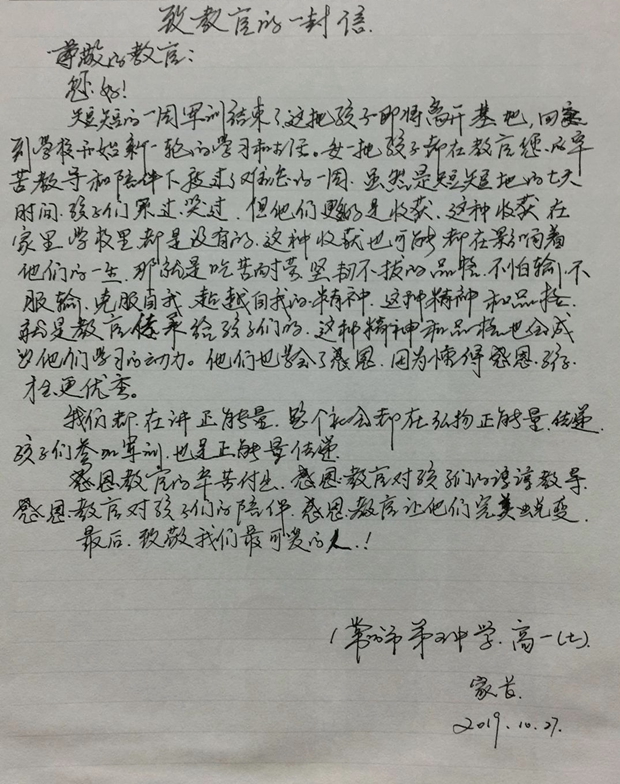 致教官的一封信
尊敬的教官:
您好!
短短的一周军训结束了,这把孩子即将离开基地,回
到学校开始新一轮的学习和生活。这一把孩子都在教官 辛
苦教导和陪伴下度过了难忘的一周.虽然是短短地的七天
时间.孩子们哭过.笑过.但他们更多的是收获.这种收获在
家里学校里都是没有的.这种收获也可能都在影响着
他们的一生.那就是吃苦耐劳.坚韧不拔的品格.不怕输.不
服输.克服自我.超越自我的精神.这种精神和品格.
就是教官传承给孩子们的.这种精神和品格也会成
为他们学习的动力。他们也学会了感恩.因为懂得感恩.孩子
才会更优秀。
我们都在讲正能量.整个社会都在弘扬正能量.传递.
孩子们参加军训.也是正能量传递.
感恩教官的辛苦付出.感恩教官对孩子们的谆谆教导.
感恩教官对孩子们的陪伴.感恩教官让他们完美蜕变.
最后.致敬我们最可爱的人.!
常州市第 中学.高一(七).
家长.
2019.10.27.